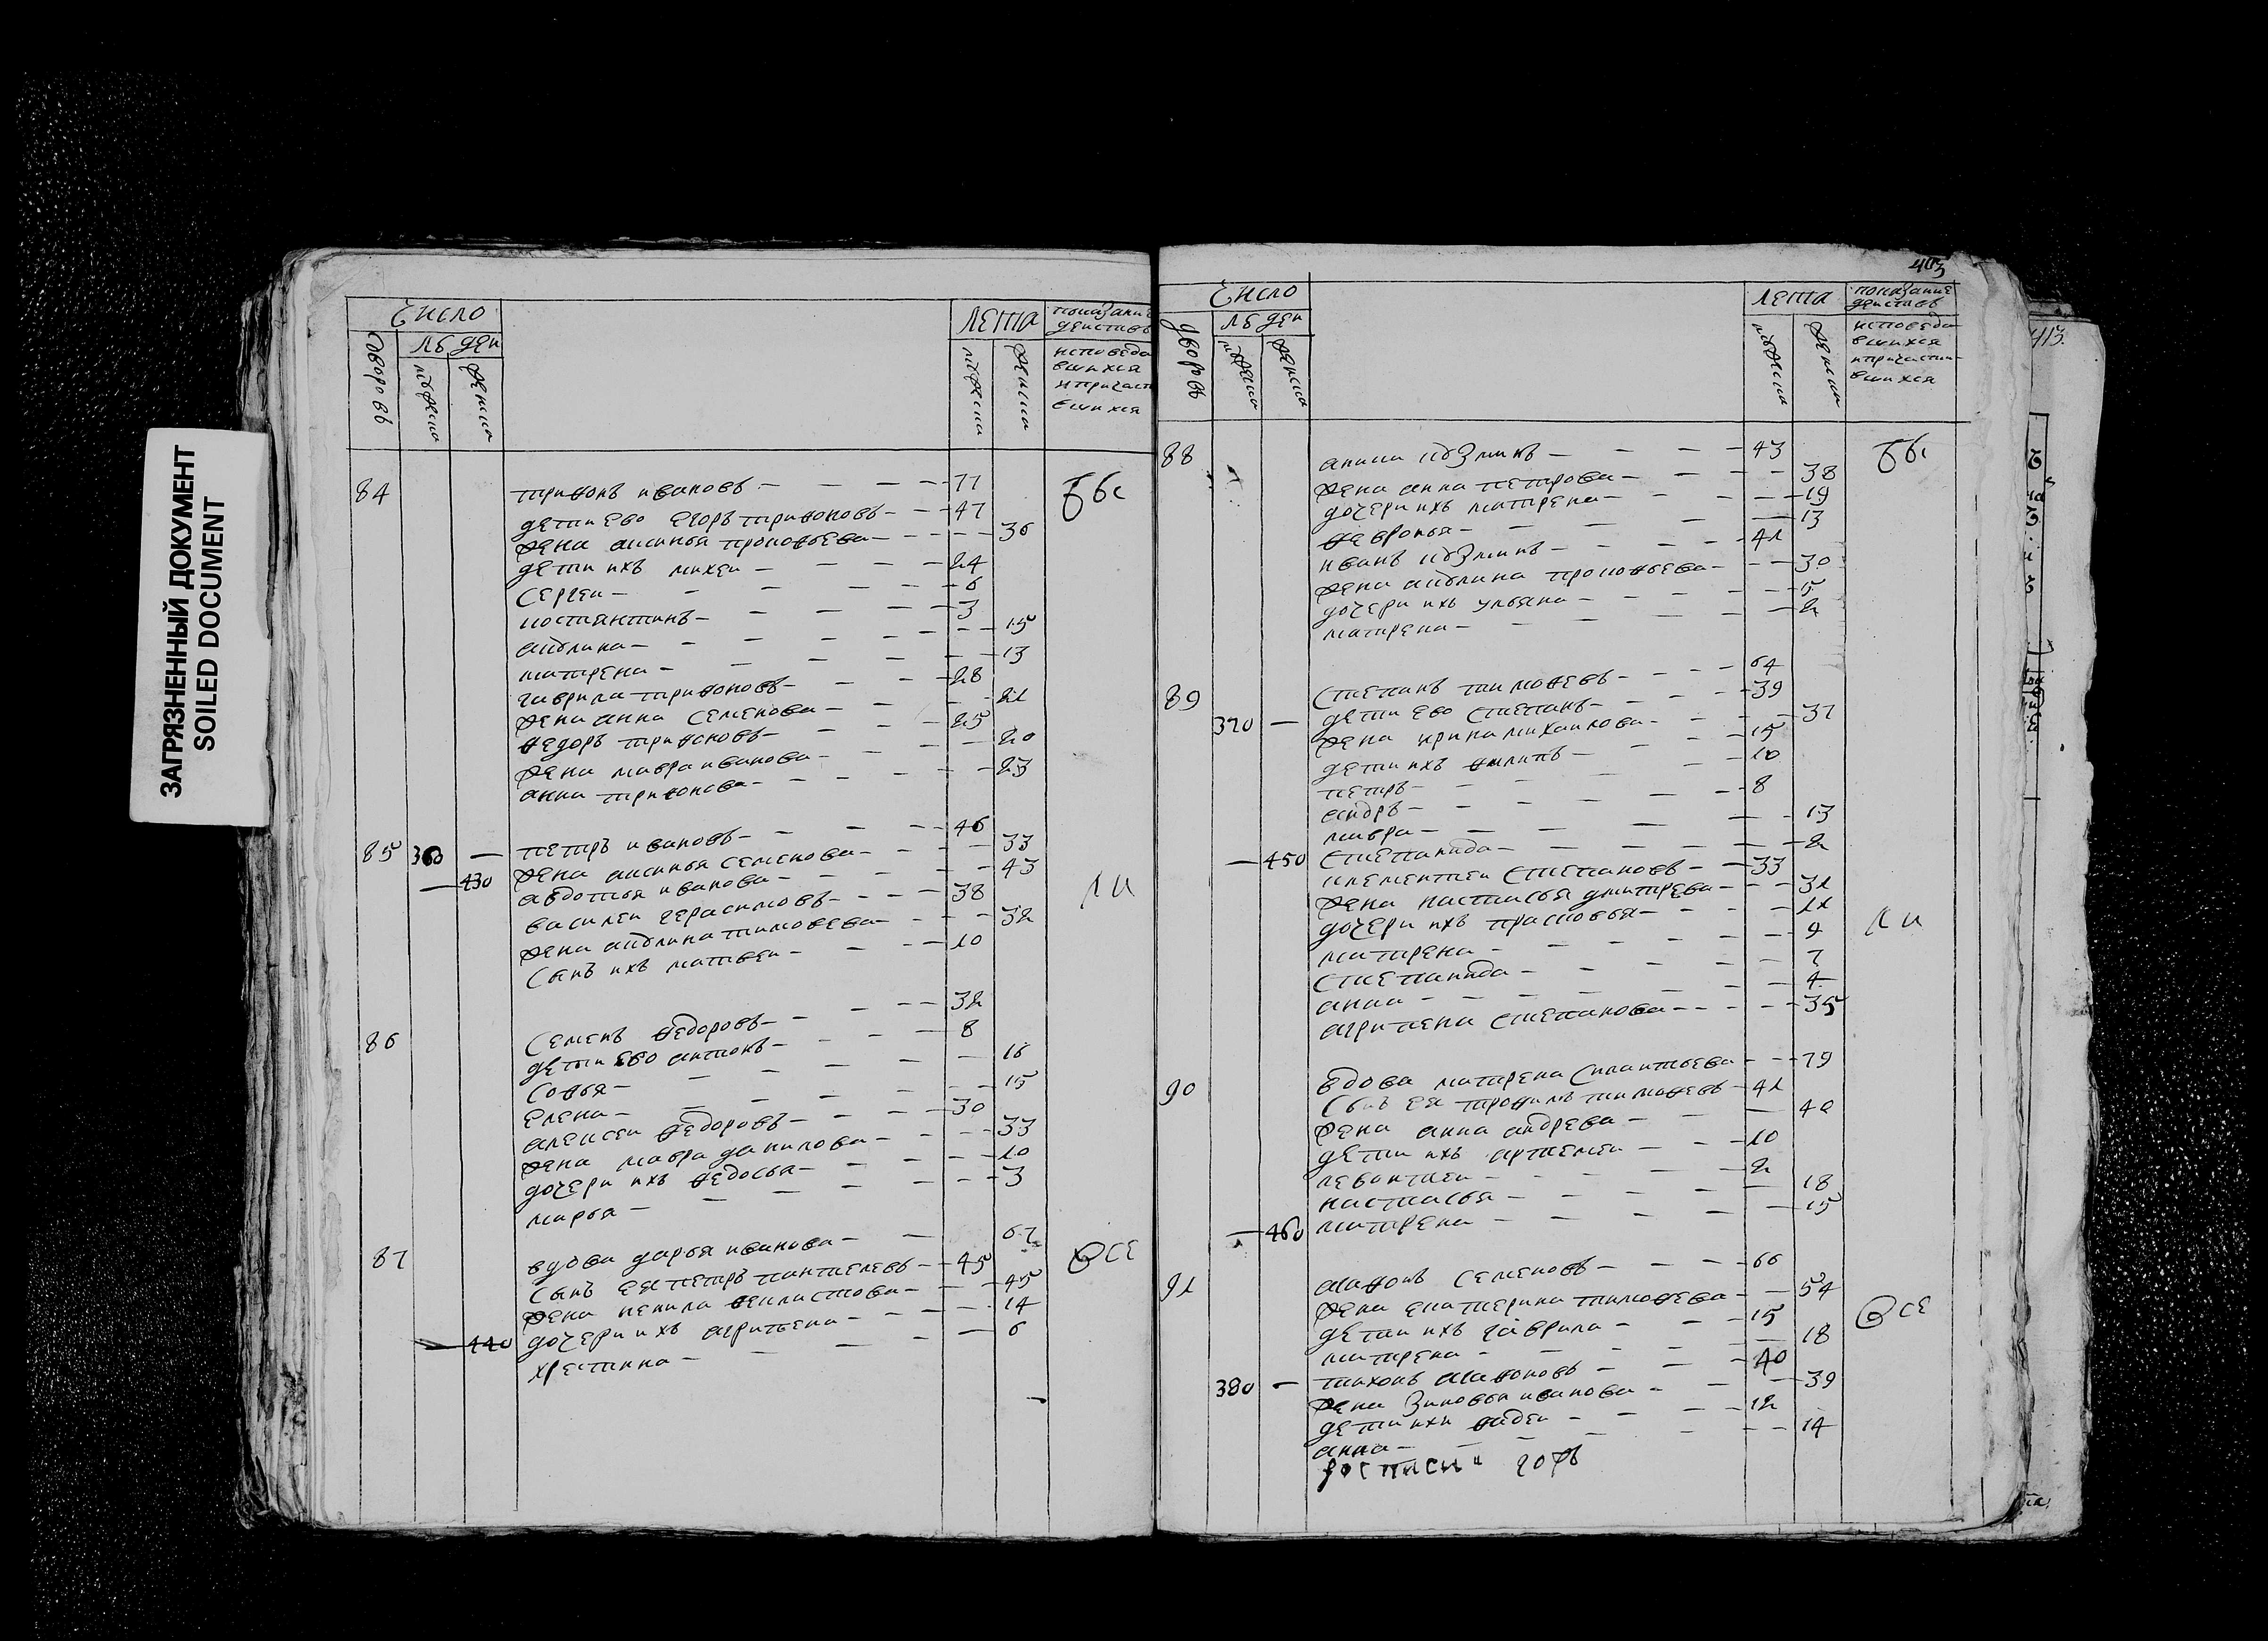 ЗАГРЯЗНЕННЫЙ ДОКУМЕНТ
SOILED DOCUMENT
число
лета
показание
действъ
дворовъ
люден
мужеска
женска
мужеска
женска
исповеда
вшихся
и причасти
вшихся
84 трифонъ ивановъ 77
дети ево егоръ трифоновъ 47
жена аксинья прокофьева 36
дети ихъ михеи 24
сергеи 6
костянтинъ 3
акулина 15
матрена 13
гаврила трифоновъ 28
жена анна семенова 21
федоръ трифоновъ 25
жена мавра иванова 20
анна трифонова 23
85 360 петръ ивановъ 46
430 жена аксинья семенова 33
авдотья иванова 43
василеи герасимовъ 38
жена акулина тимофеева 32
сынъ ихъ матвеи 10
86 семенъ федоровъ 32
дети ево антонъ 8
софья 16
елена 15
алексеи федоровъ 30
жена мавра данилова 33
дочери ихъ федосья 10
марья 3
87 вдова дарья иванова 67
сынъ ея петръ пантелевъ 45
жена ненила феклистова 45
440 дочери ихъ агрипена 14
хрестина 6
все
403
число
лета
показание
действъ
дворовъ
люден
мужеска
женска
мужеска
женска
исповеда
вшихся
и причасти
вшихся
88 аники кузминъ 43
жена анна петрова 38
дочери ихъ матрена 19
февронья 13
иванъ кузминъ 41
жена акулина прокофьева 30
дочери ихъ ульяна 5
матрена 2
89 степанъ тимофевъ 64
370 дети ево степанъ 39
жена ирина михаилова 37
дети ихъ филипъ 15
петръ 10
сидръ 8
мавра 13
450 степанида 2
клементеи степановъ 33
жена настасья дмитрева 31
дочери ихъ прасковья 11
матрена 9
степанида 7
анна 4
агрипена степанова 35
90 вдова матрена силантьева 79
сынъ ея трофимъ тимофевъ 41
жена анна андрева 40
дети ихъ артемеи 10
левонтеи 2
настасья 18
460 матрена 15
91 агафонъ семеновъ 66
жена екатерина тимофева 54
дети ихъ гаврила 15
матрена 18
380 тихонъ агафоновъ 40
жена зиновья иванова 39
дети ихъ фадеи 12
анна 14
все
413